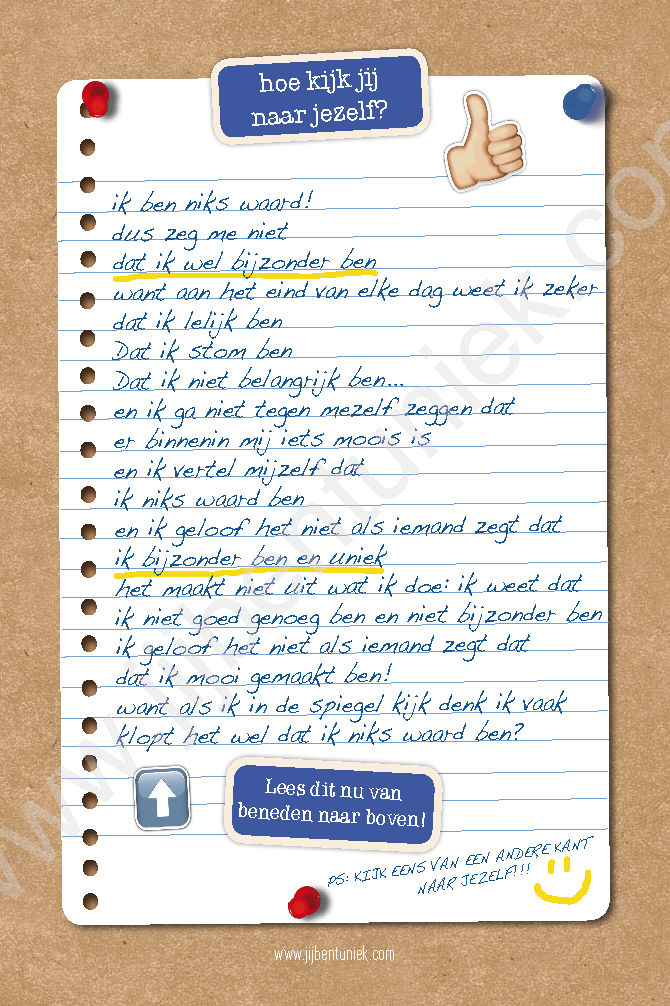 hoe kijk jij
naar jezelf?
ik ben niks waard!
dus zeg me niet
dat ik wel bijzonder ben
want aan het eind van elke dag weet ik zeker
dat ik lelijk ben
Dat ik stom ben
Dat ik niet belangrijk ben...
en ik ga niet tegen mezelf zeggen dat
er binnenin mij iets moois is
en ik vertel mijzelf dat
ik niks waard ben
en ik geloof het niet als iemand zegt dat
ik bijzonder ben en uniek
het maakt niet uit wat ik doe: ik weet dat
ik niet goed genoeg ben en niet bijzonder ben
ik geloof het niet als iemand zegt dat
dat ik mooi gemaakt ben!
want als ik in de spiegel kijk denk ik vaak
klopt het wel dat ik niks waard ben?
Lees dit nu van
beneden naar boven!
PS: KIJK EENS VAN EEN ANDERE KANT
NAAR JEZELF!!!
www.jijbentuniek.com
www.jijbentuniek.com